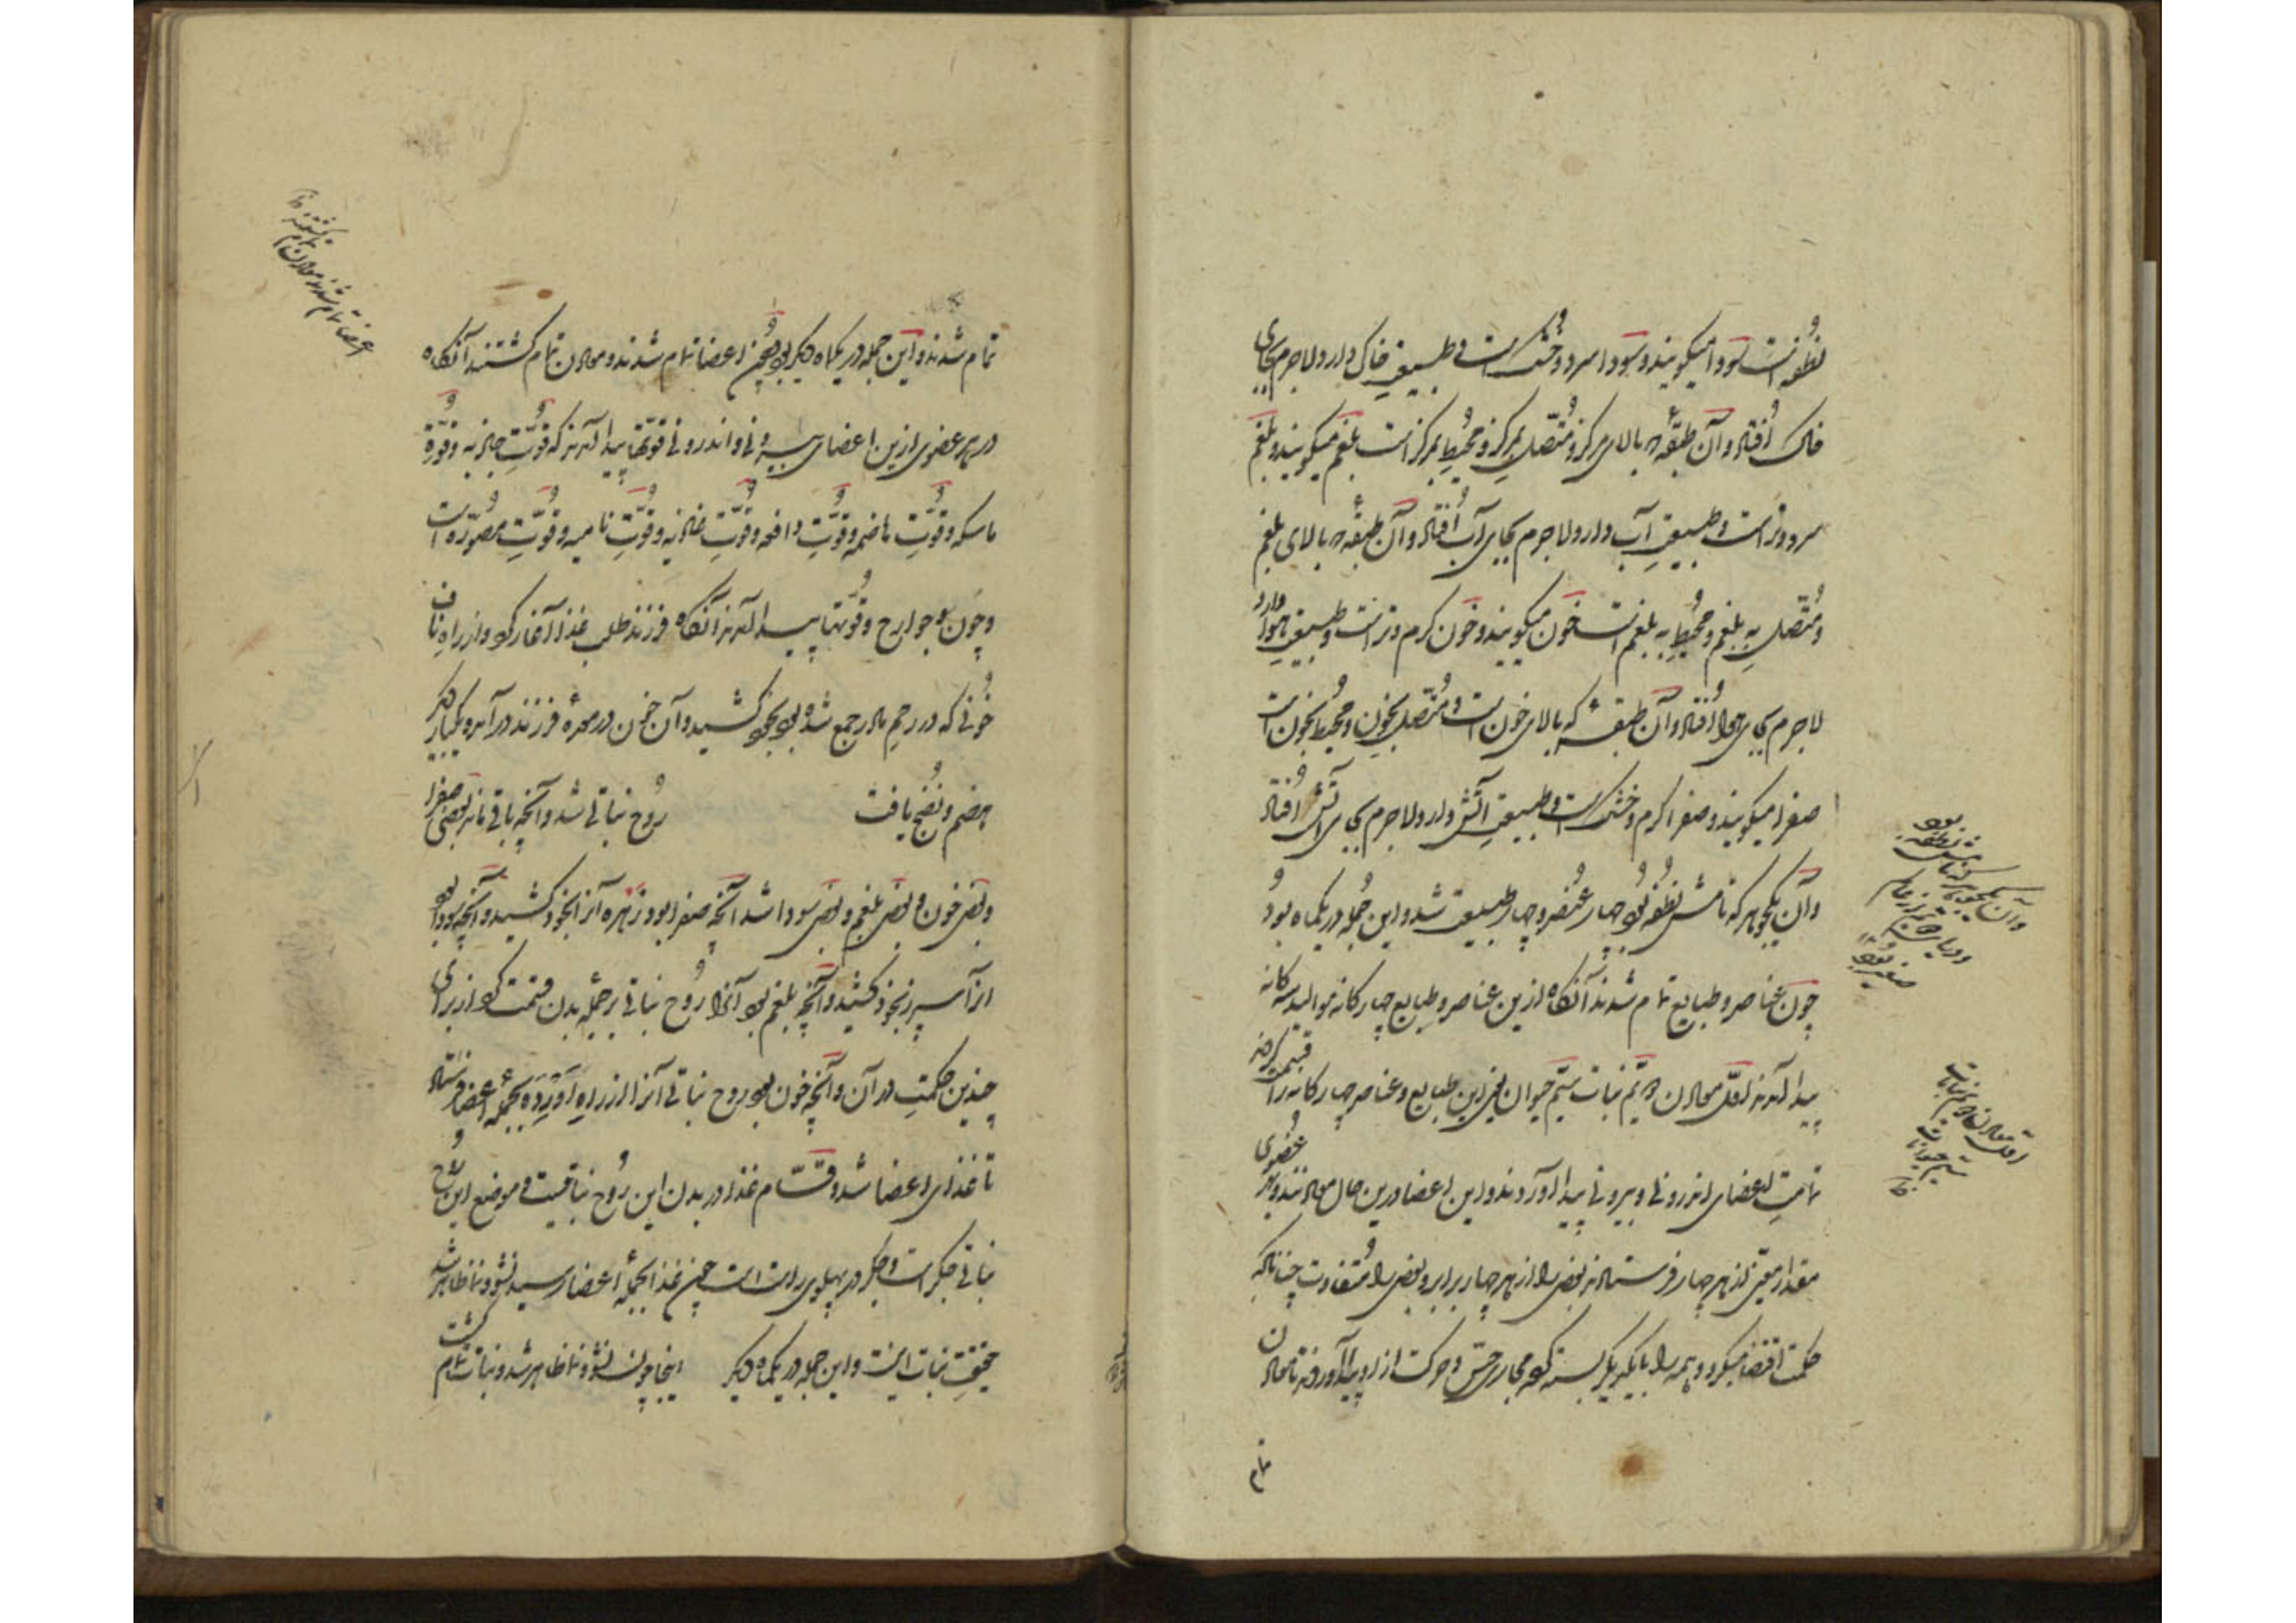 نُطفه است سودا میگویند و سودا سرد و خشک است و طبیعتِ خاک دارد و لاجرم بجای
خاک اُفتاد و آن طبقه که بالای مرکز و مُتّصلِ بمرکز و مُحیطِ بمرکز است بلغم میگویند و بلغم
سرد و تر است و طبیعتِ آب دارد و لاجرم بجای آب اُفتاد و آن طبقه که بالای بلغم
و مُتّصلِ به بلغم و مُحیطِ به بلغم است خون میگویند و خون گرم و تر است و طبیعتِ هوا دارد
لاجرم بجای هوا اُفتاد و آن طبقه که بالای خون است و مُتّصل بخون و مُحیط بخون است
صفرا میگویند و صفرا گرم و خشک است و طبیعتِ آتش دارد و لاجرم بجای آتش اُفتاد
و آن یک جوهر که نامش نُطفه بود چهار عُنصر و چهار طبیعت شد و این جُمله در یکماه بود
چون عناصر و طبایع تمام شدند آنگاه ازین عناصر و طبایع چهارگانه موالید سه‌گانه
پیدا آمدند اوّل معادن دویّم نبات سیّم حیوان یعنی این طبایع و عناصر چهارگانه را قسمت کردند
تمامتِ اعضای اندرونی و بیرونی پیدا آوردند و این اعضا درین حال معادنند و هر عُضوی
مقدار معیّن از هر چهار فرستادند بعضی را از هر چهار برابر و بعضی را مُتفاوت چنانکه
حکمت اقتضا میکرد و همه را با یکدیگر بسته کرد مجاری حسّ و حرکت ازو پیدا آوردند تا معادن
تمام
وآن یک جوهر که نامش نطفه بود
اوّل معادن دویم نبات
سیم حیوانات
تمام شدند و این جمله در یکماه دیگر بود چون اعضا تمام شدند و معادن تمام گشتند آنگاه
در هر عضوی ازین اعضای بیرونی و اندرونی قوّتها پیدا آمدند که قُوّتِ جاذبه و قُوّة
ماسکه و قُوّتِ هاضمه و قُوّتِ دافعه و قُوّتِ غاذیه و قُوّتِ نامیه و قُوّتِ مصوّره است
و چون جوارح و قُوّتها پیدا آمدند آنگاه فرزند طلب غذا آغاز کرد و از راهِ ناف
خُونی که در رحمِ مادر جمع شده بود بخود کشید و آن خون در معدهٔ فرزند درآمد و یکبار دیگر
هضم و نُضج یافت روُح نباتی شد و آنچه باقی ماند بعضی صفرا
و بعضی خون و بعضی بلغم و بعضی سودا شد آنچه صفرا بود زهره آنرا بخود کشید و آنچه سودا بود
آنرا سپرز بخود کشید و آنچه بلغم بود آنرا رُوح نباتی بر جُملهٔ بدن قسمت کرد از برای
چندین حکمتِ در آن و آنچه خون بود روح نباتی آنرا از راهِ اورده بجُملهٔ اعضا فرستاد
تا غذای اعضا شد و قسّام غذا در بدن این رُوح نباتیست و موضع این رُوح
نباتی جگر است و جگر در پهلوی راست است چون غذا بجملهٔ اعضا رسید نشو و نما ظاهر شد
حقیقتِ نبات اینست و این جمله در یکماه دیگر اینجا چون نشو و نما ظاهر شد و نبات تمام گشت
اعضا تمام شدند معادن تمام گشتند